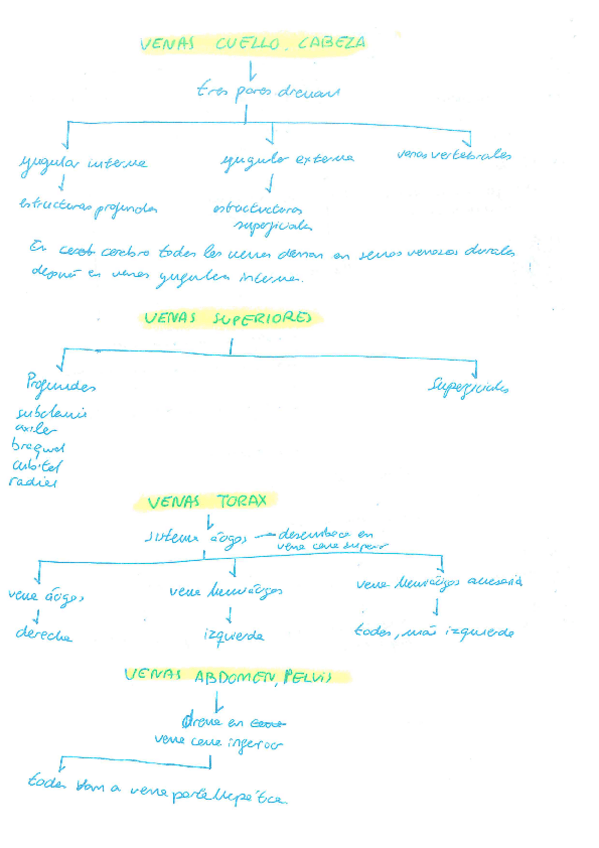 VENAS CUELLO, CABEZA
tres pares drenan
yugular interna
yugular externa
venas vertebrales
estructuras profundas
estructuras
superficiales
En cereb cerebro todas las venas drenan en senos venosos durales
después en venas yugulares interna.
VENAS SUPERIORES
Profundas
Superficiales
subclavia
axilar
braquial
cubital
radial
VENAS TORAX
sistema ácigos → desemboca en
vena cava superior
vena ácigos
vena hemiácigos
vena hemiácigos accesoria
derecha
izquierda
todas, más izquierda
VENAS ABDOMEN, PELVIS
drena en
vena cava inferior
todas van a vena porta hepática.